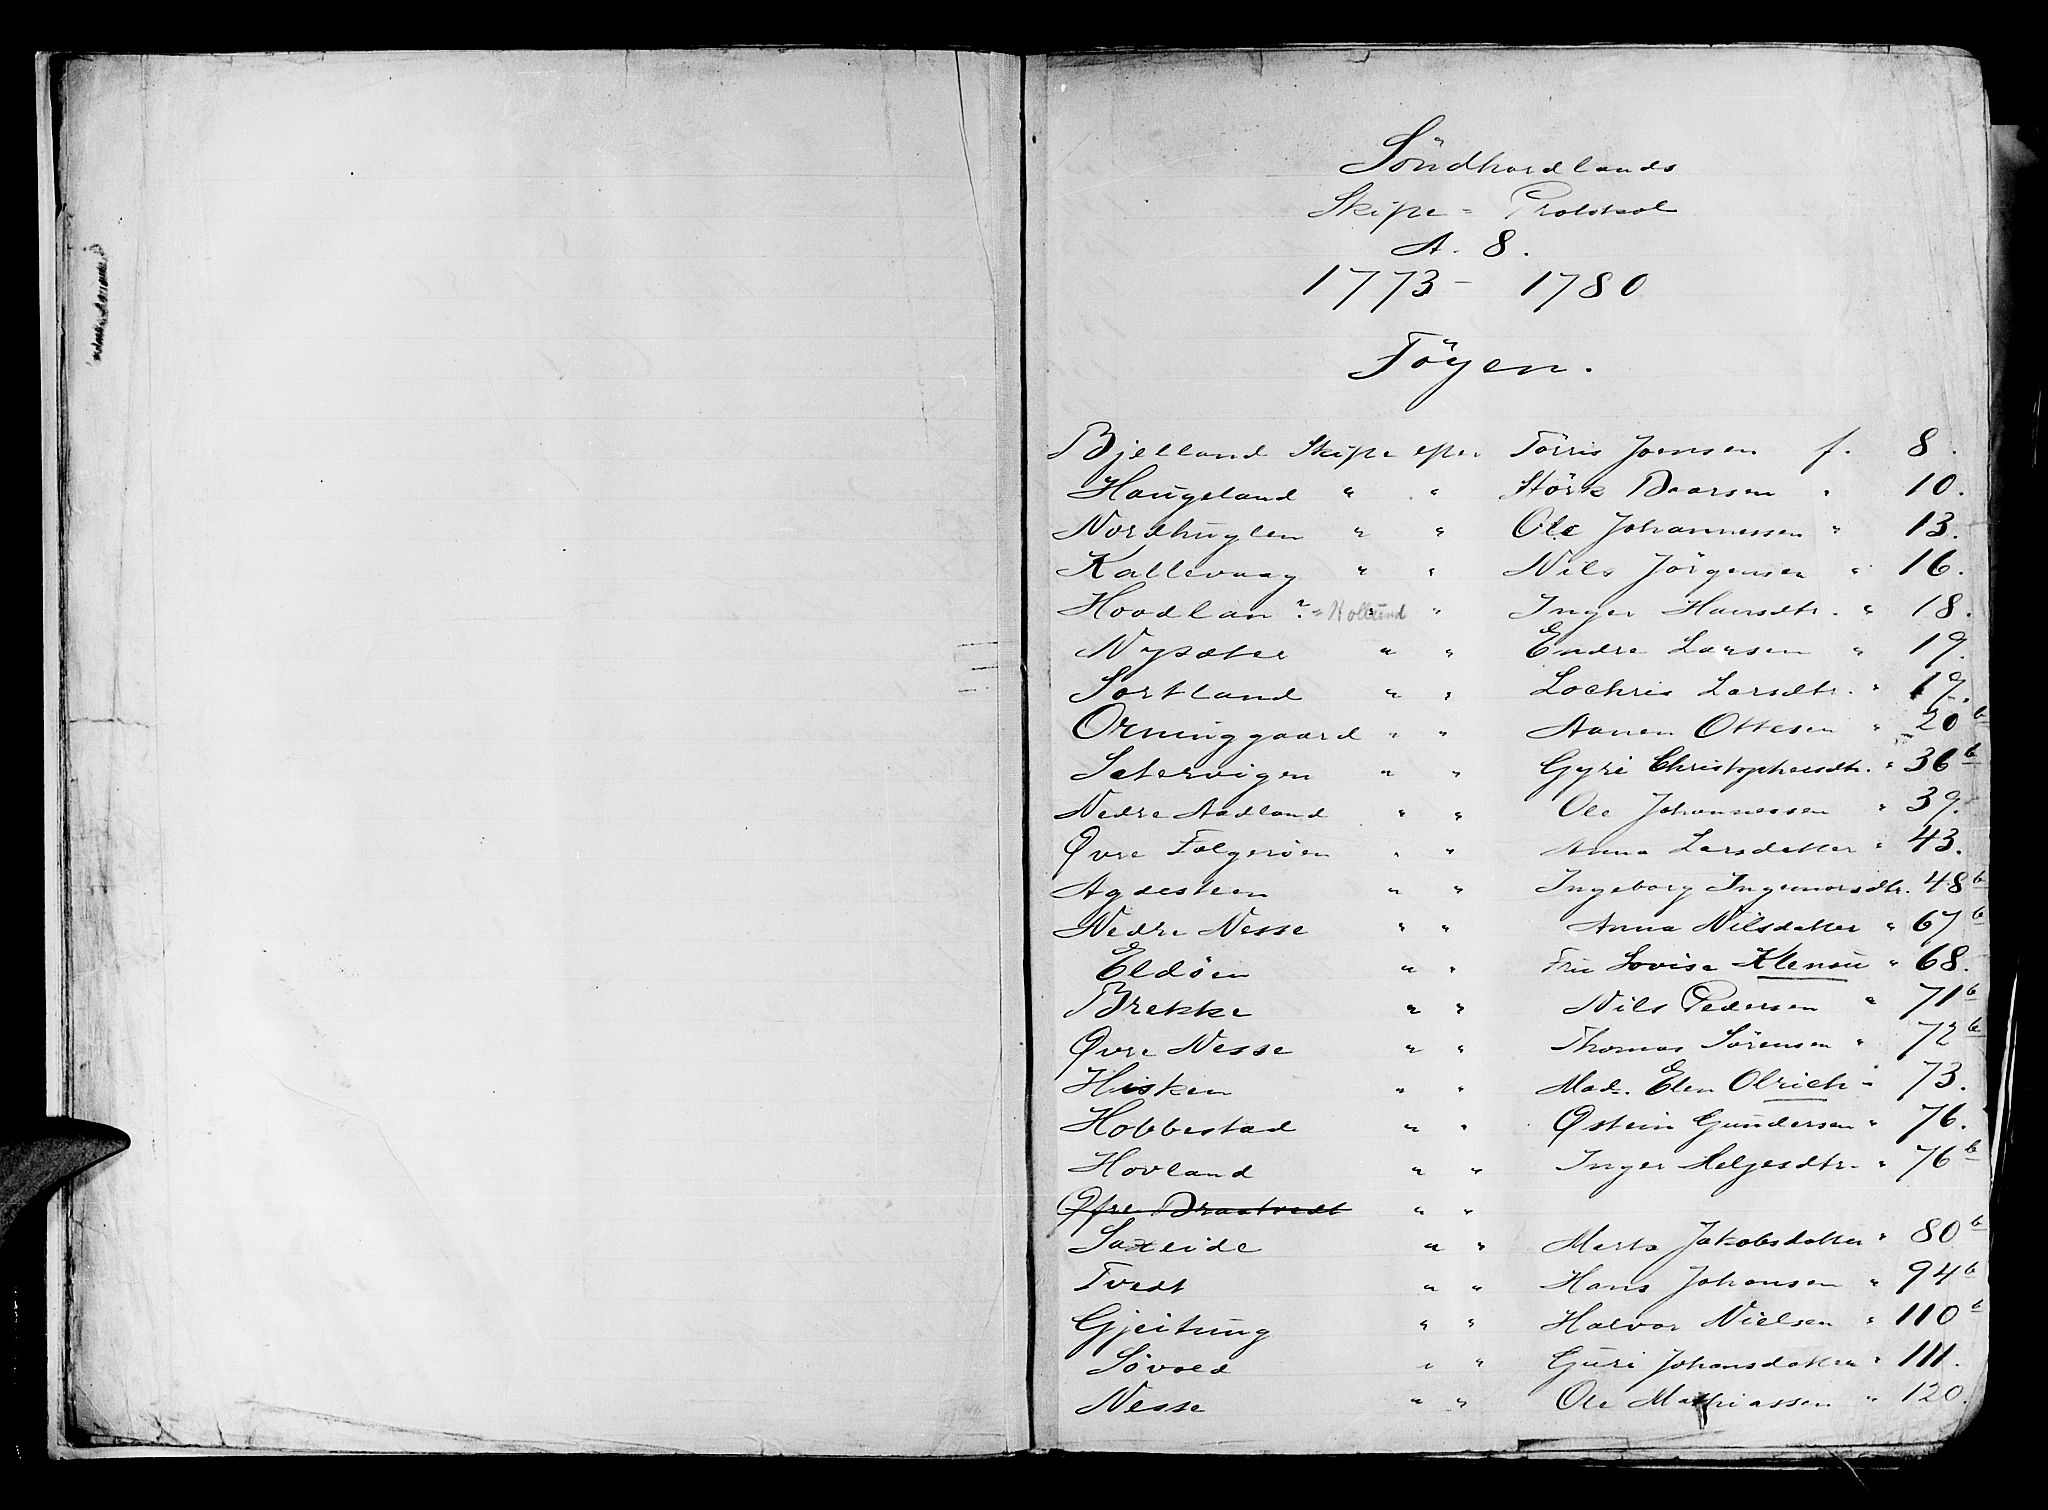 Söndhordlands
Skifte = Protokol
A. 8.
1773 - 1780
Föyen.
Bjelland Skifte efter Torris Joensen f. 8.
Haugeland " " Störk Baarsen " 10.
Nordhuglen " " Ole Johannessen " 13.
Kallevaag " " Nils Jörgensen " 16.
Hoodlan ? = Hollund " " Inger Hansdtr. " 18.
Nysæter " " Endre Larsen " 19.
Sortland " " Lochris Larsdtr. " 19.
Orninggaard " " Aanen Ottesen " 20b
Setervigen " " Gyri Christophersdtr. " 36b
Nedre Aadland " " Ole Johannessen " 39.
Øvre Folgerøen " " Anna Larsdatter " 43.
Agdesteen " " Ingeborg Ingemorsdtr. 48b
Nedre Nesse " " Anna Nilsdatter " 67b
Eldøen " " Fru Lovise Klensu " 68.
Brekke " " Nils Pedersen " 71b
Øvre Nesse " " Thomas Sørensen " 72b
Hisken " " Mad. Elen Olrich " 73.
Hobbestad " " Østein Gundersen " 76.
Hovland " " Inger Helgesdtr. " 76b
Øfre Braatvedt " "
Saxeide " " Marta Jakobsdatter " 80b
Tvedt " " Hans Johansen " 94b
Gjeitung " " Halvor Nielsen " 110b
Søvold " " Guri Johansdatter " 111.
Nesse " " Ole Mathiassen " 120.